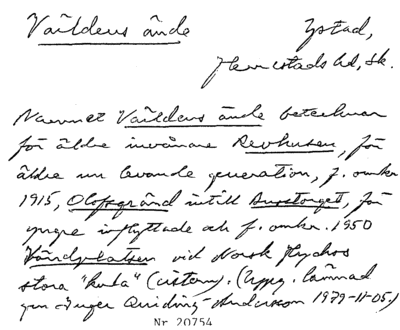 Världens ände
Ystad,
Herrestads hd, Sk.
Namnet Världens ände betecknar
för äldre invånare Revhusen, för
äldre nu levande generation, f. omkr.
1915, Olofsgränd intill Surbrunnstorget, för
yngre inflyttade och f. omkr. 1950
Vändplatsen vid Norsk Hydros
stora "kula" (cistern). (Uppg. lämnad
gm Inger Quiding-Andersson 1979-11-05.)
Nr 20754